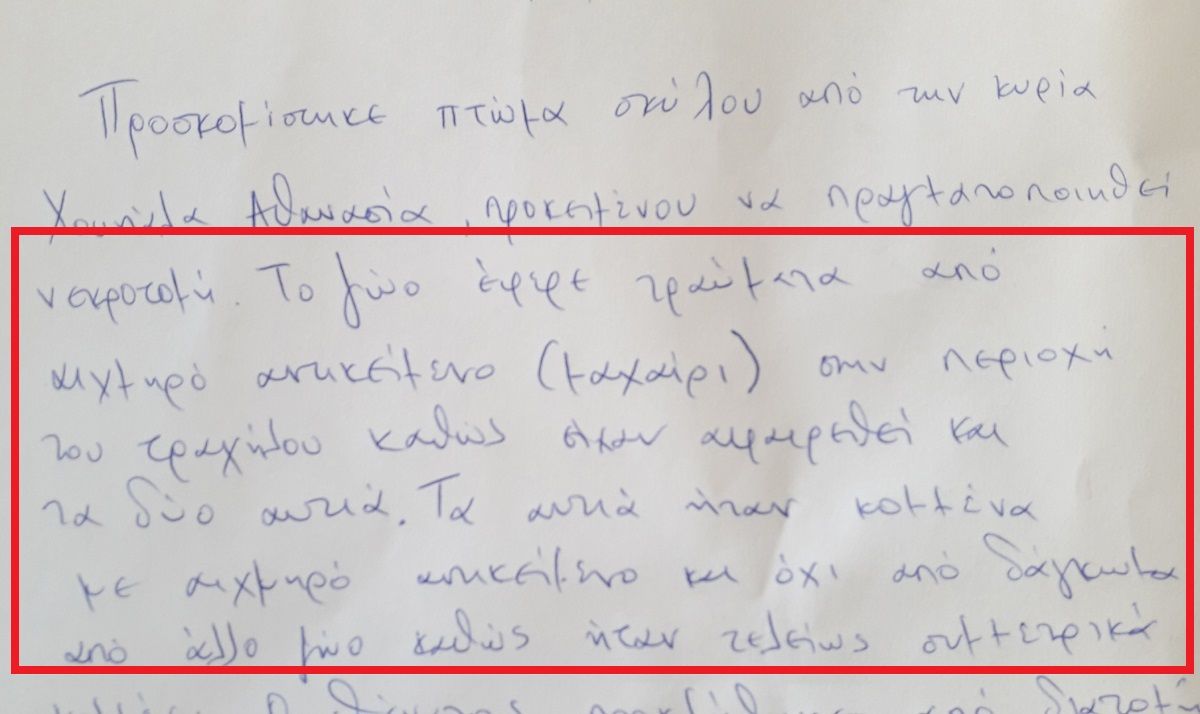 Προσκομίστηκε πτώμα σκύλου από την κυρία
Αθανασία, προκειμένου να πραγματοποιηθεί
νεκροτομή. Το ζώο έφερε τραύματα από
αιχμηρό αντικείμενο (μαχαίρι) στην περιοχή
του τραχήλου καθώς είχαν αφαιρεθεί και
τα δύο αυτιά. Τα αυτιά ήταν κομμένα
με αιχμηρό αντικείμενο και όχι από δάγκωμα
από άλλο ζώο καθώς ήταν τελείως συμμετρικά